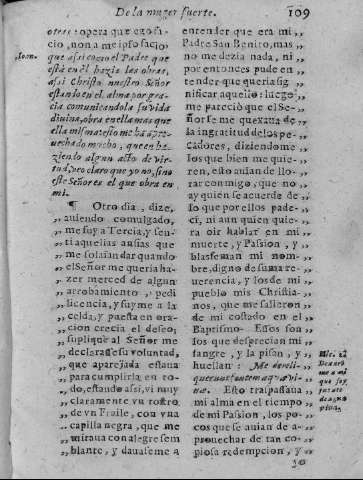 De la muger fuerte. 109
otras: opera que ego facio,
cio, non a me ipso facio:
Ioan.
que assi como el Padre que
está en él hazia las obras,
assi Christo nuestro Señor
estando en el alma por gra-
cia comunicandola su vida
diuina, obra en ella mas que
ella misma: esto me ha apro-
uechado mucho, que en ha-
ziendo algun acto de vir-
tud, veo claro que yo no, sino
este Señor es el que obra en
mi.
¶ Otro dia, dize,
„ auiendo comulgado,
„ me fuy a Tercia, y sen-
„ ti aquellas ansias que
„ me solaian dar quando
„ el Señor me queria ha-
„ zer merced de algun
„ arrobamiento, pedi
„ licencia, y fuyme a la
„ celda, y puesta en ora-
„ cion crecia el deseo;
„ supliquè al Señor me
„ declarasse su voluntad,
„ que aparejada estaua
„ para cumplirla en to-
„ do, estando assi, vi muy
„ claramente vn rostro
„ de vn Fraile, con vna
„ capilla negra, que me
„ miraua con alegre sem
„ blante, y dauaseme a
entender que era mi „
Padre San Benito, mas „
no me dezia nada, ni „
por entonces pude en „
tender que queria sig- „
nificar aquello: luego „
me pareciò que el Se- „
ñor se me quexaua de „
la ingratitud de los pe- „
cadores, diziendome „
los que bien me quie- „
ren, esto auian de llo- „
rar conmigo, que no „
ay quien se acuerde de „
lo que por ellos pade- „
ci, ni aun quien quie- „
ra oir hablar en mi „
muerte, y Passion, y „
blasfeman mi nom- „
bre, digno de suma re- „
uerencia, y los de mi „
pueblo mis Christia- „
nos, que me salieron „
de mi costado en el „
Baptismo. Essos son „
los que desprecian mi „
sangre, y la pisan, y „
huellan: Me dereli-
querunt fontem aquæ vi-
uæ. Esto traspassaua „
mi alma en el tiempo „
de mi Passion, los po- „
cos que se auian de a- „
prouechar de tan co- „
piosa redempcion, y „
a mi